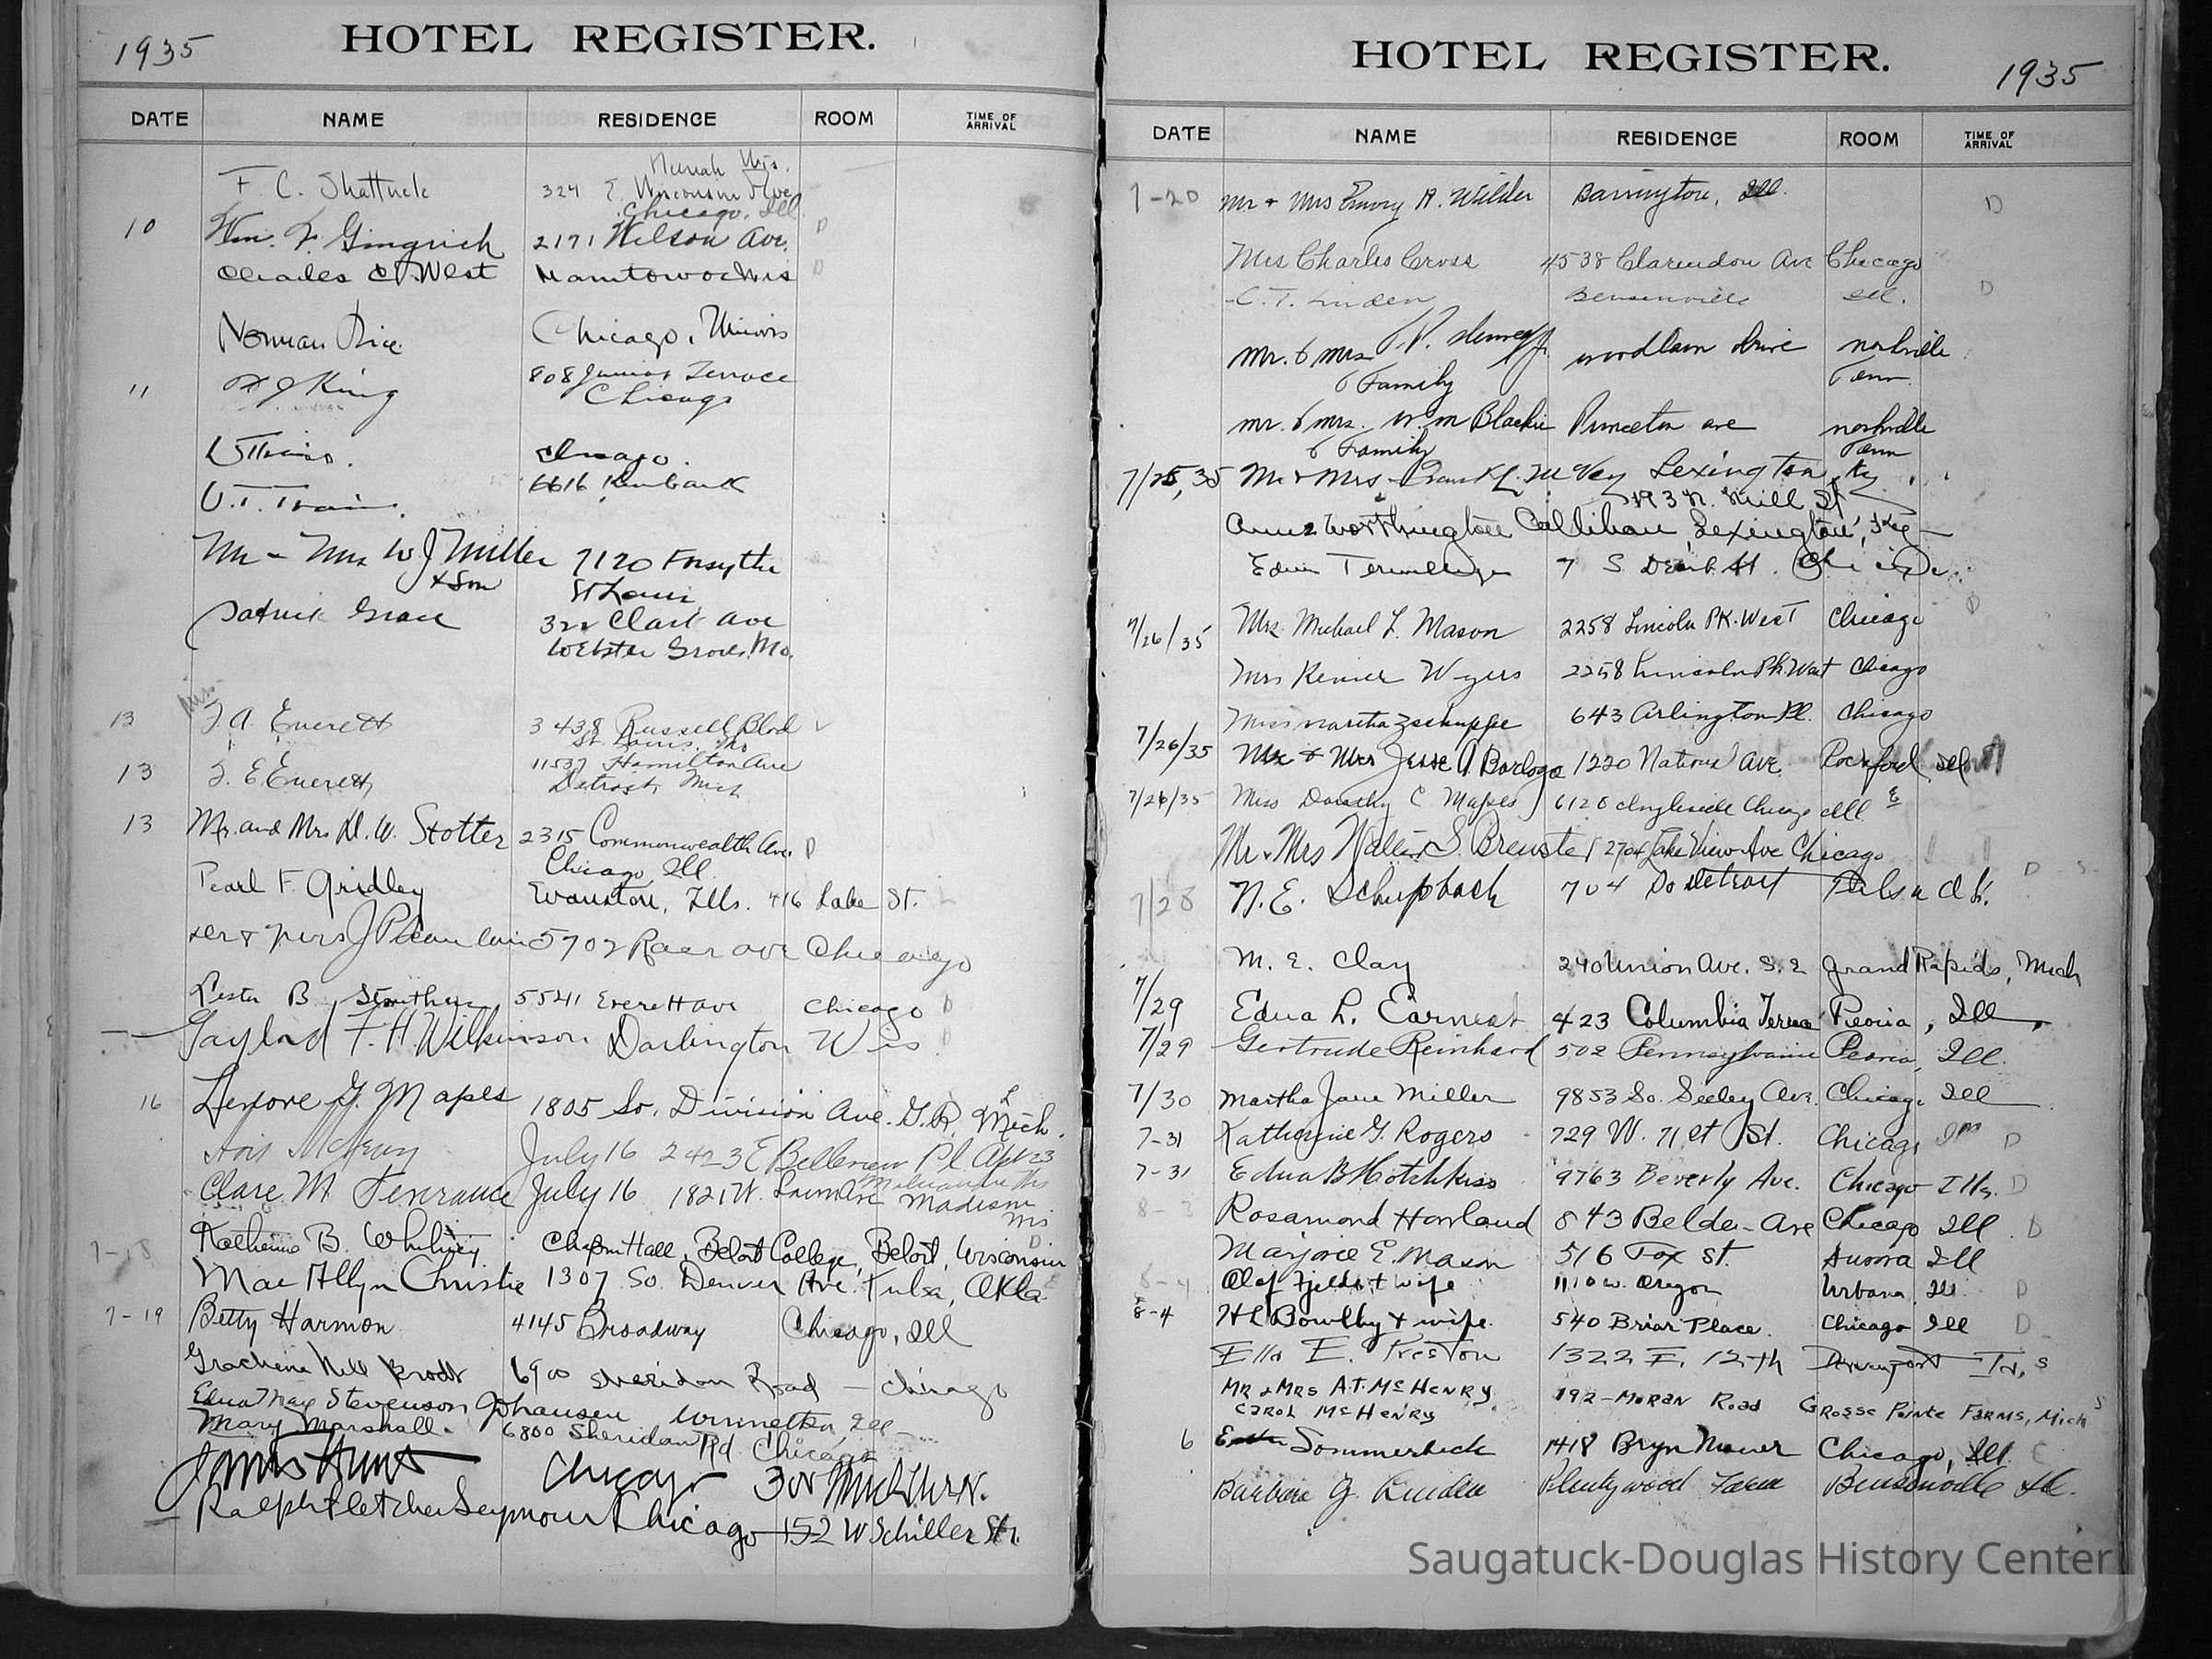 1935
HOTEL REGISTER.
DATE NAME RESIDENCE ROOM TIME OF ARRIVAL
Neenah Wis.
F. C. Shattuck 324 E. Wisconsin Ave
Chicago, Ill
10 Wm. F. Gingrich 2171 Wilson Ave.
Charles C. West Manitowoc Wis
Norman Rice Chicago, Illinois
11 King 808 Junior Terrace
Chicago
Chicago.
U.T. Train. 6616 Kimbark
Mr - Mrs W J Miller 7120 Forsythe
+ Son St Louis
Patrick Grace 322 Clark Ave
Webster Groves, Mo.
Miss
13 F. A. Everett 3438 Russell Blvd
St. Louis, Mo
13 F. E. Everett 11537 Hamilton Ave
Detroit, Mich
13 Mr. and Mrs D. W. Stotter 2315 Commonwealth Ave. D
Chicago, Ill.
Pearl F. Gridley Evanston, Ills. 416 Lake St.
5702 Ave Chicago
Lester B. 5541 Everett Ave Chicago D
Gaylord F. H. Wilkinson Darlington Wis
16 Lenore G. Mapes 1805 So. Division Ave. G.R. Mich.
July 16 2423 E Belleview Pl. Apt 23
Milwaukee Wis
Clare M July 16 1821 W. Ave Madison
Wis
7-18 Katherine B. Whitney Chapin Hall, Beloit College, Beloit, Wisconsin
Mae Allyn Christie 1307 So. Denver Ave. Tulsa, Okla
7-19 Betty Harmon 4145 Broadway Chicago, Ill
6900 Sheridan Road - Chicago
Edna May Stevenson Johansen Winnetka Ill
Mary Marshall. 6800 Sheridan Rd Chicago
Hunt Chicago
Ralph Fletcher Seymour Chicago 152 W Schiller St.
HOTEL REGISTER.
1935
DATE NAME RESIDENCE ROOM TIME OF ARRIVAL
7-20 Mr + Mrs Emory R. Wilder Barrington, Ill. D
Mrs Charles Cross 4538 Clarendon Ave Chicago
C. T. Linden Bensenville Ill. D
Mr. & Mrs. Jr. Woodlawn Drive Nashville
& Family Tenn.
Mr. & Mrs. W. M Blackie Princeton Ave Nashville
& Family Tenn
7/25,35 Mr + Mrs Frank L. McVey Lexington, Ky
193 N. Mill St
Anne Worthington Callihan Lexington, Ky
Edwin Terwilliger 7 S. Dearb. St. Chicago
7/26/35 Mrs. Michael L. Mason 2258 Lincoln Pk. West Chicago
Mrs Renier Wyers 2258 Lincoln Pk. West Chicago
Miss Martha Zschuppe 643 Arlington Pl. Chicago
7/26/35 Mr + Mrs Jesse A. Barloga 1220 National Ave. Rockford, Ill
7/26/35 Miss Dorothy C Mapes 6120 Ingleside Chicago Ill
Mr. Mrs Walter S. Brewster 2704 Lake View Ave Chicago
7/28 N. E. Schupbach 704 So Detroit Tulsa Ok.
M. E. Clay 240 Union Ave. S.E Grand Rapids, Mich
7/29 Edna L. Earnest 423 Columbia Terrace Peoria, Ill.
7/29 Gertrude Reinhard 502 Pennsylvania Peoria, Ill.
7/30 Martha Jane Miller 9853 So. Seeley Ave. Chicago Ill
7-31 Katherine G. Rogers 729 W. 71st St. Chicago Ill D
7-31 Edna B Hotchkiss 9763 Beverly Ave. Chicago Ills. D
8-3 Rosamond Howland 843 Belden Ave Chicago Ill. D
Marjorie E. Mason 516 Fox St. Aurora Ill
8-4 Olaf Fjelde + wife 1110 W. Oregon Urbana, Ill. D
8-4 H L Bowlby + wife. 540 Briar Place. Chicago Ill D
Ella E. Preston 1322 E. 12th Davenport Ia. S
MR & MRS A.T. McHENRY 192-MORAN Road GROSSE Pointe FARMS, Mich S
CAROL McHENRY
6 Sommerbeck 1418 Bryn Mawr Chicago, Ill.
Barbara G. Linden Plentywood Farm Bensenville Ill.
Saugatuck-Douglas History Center